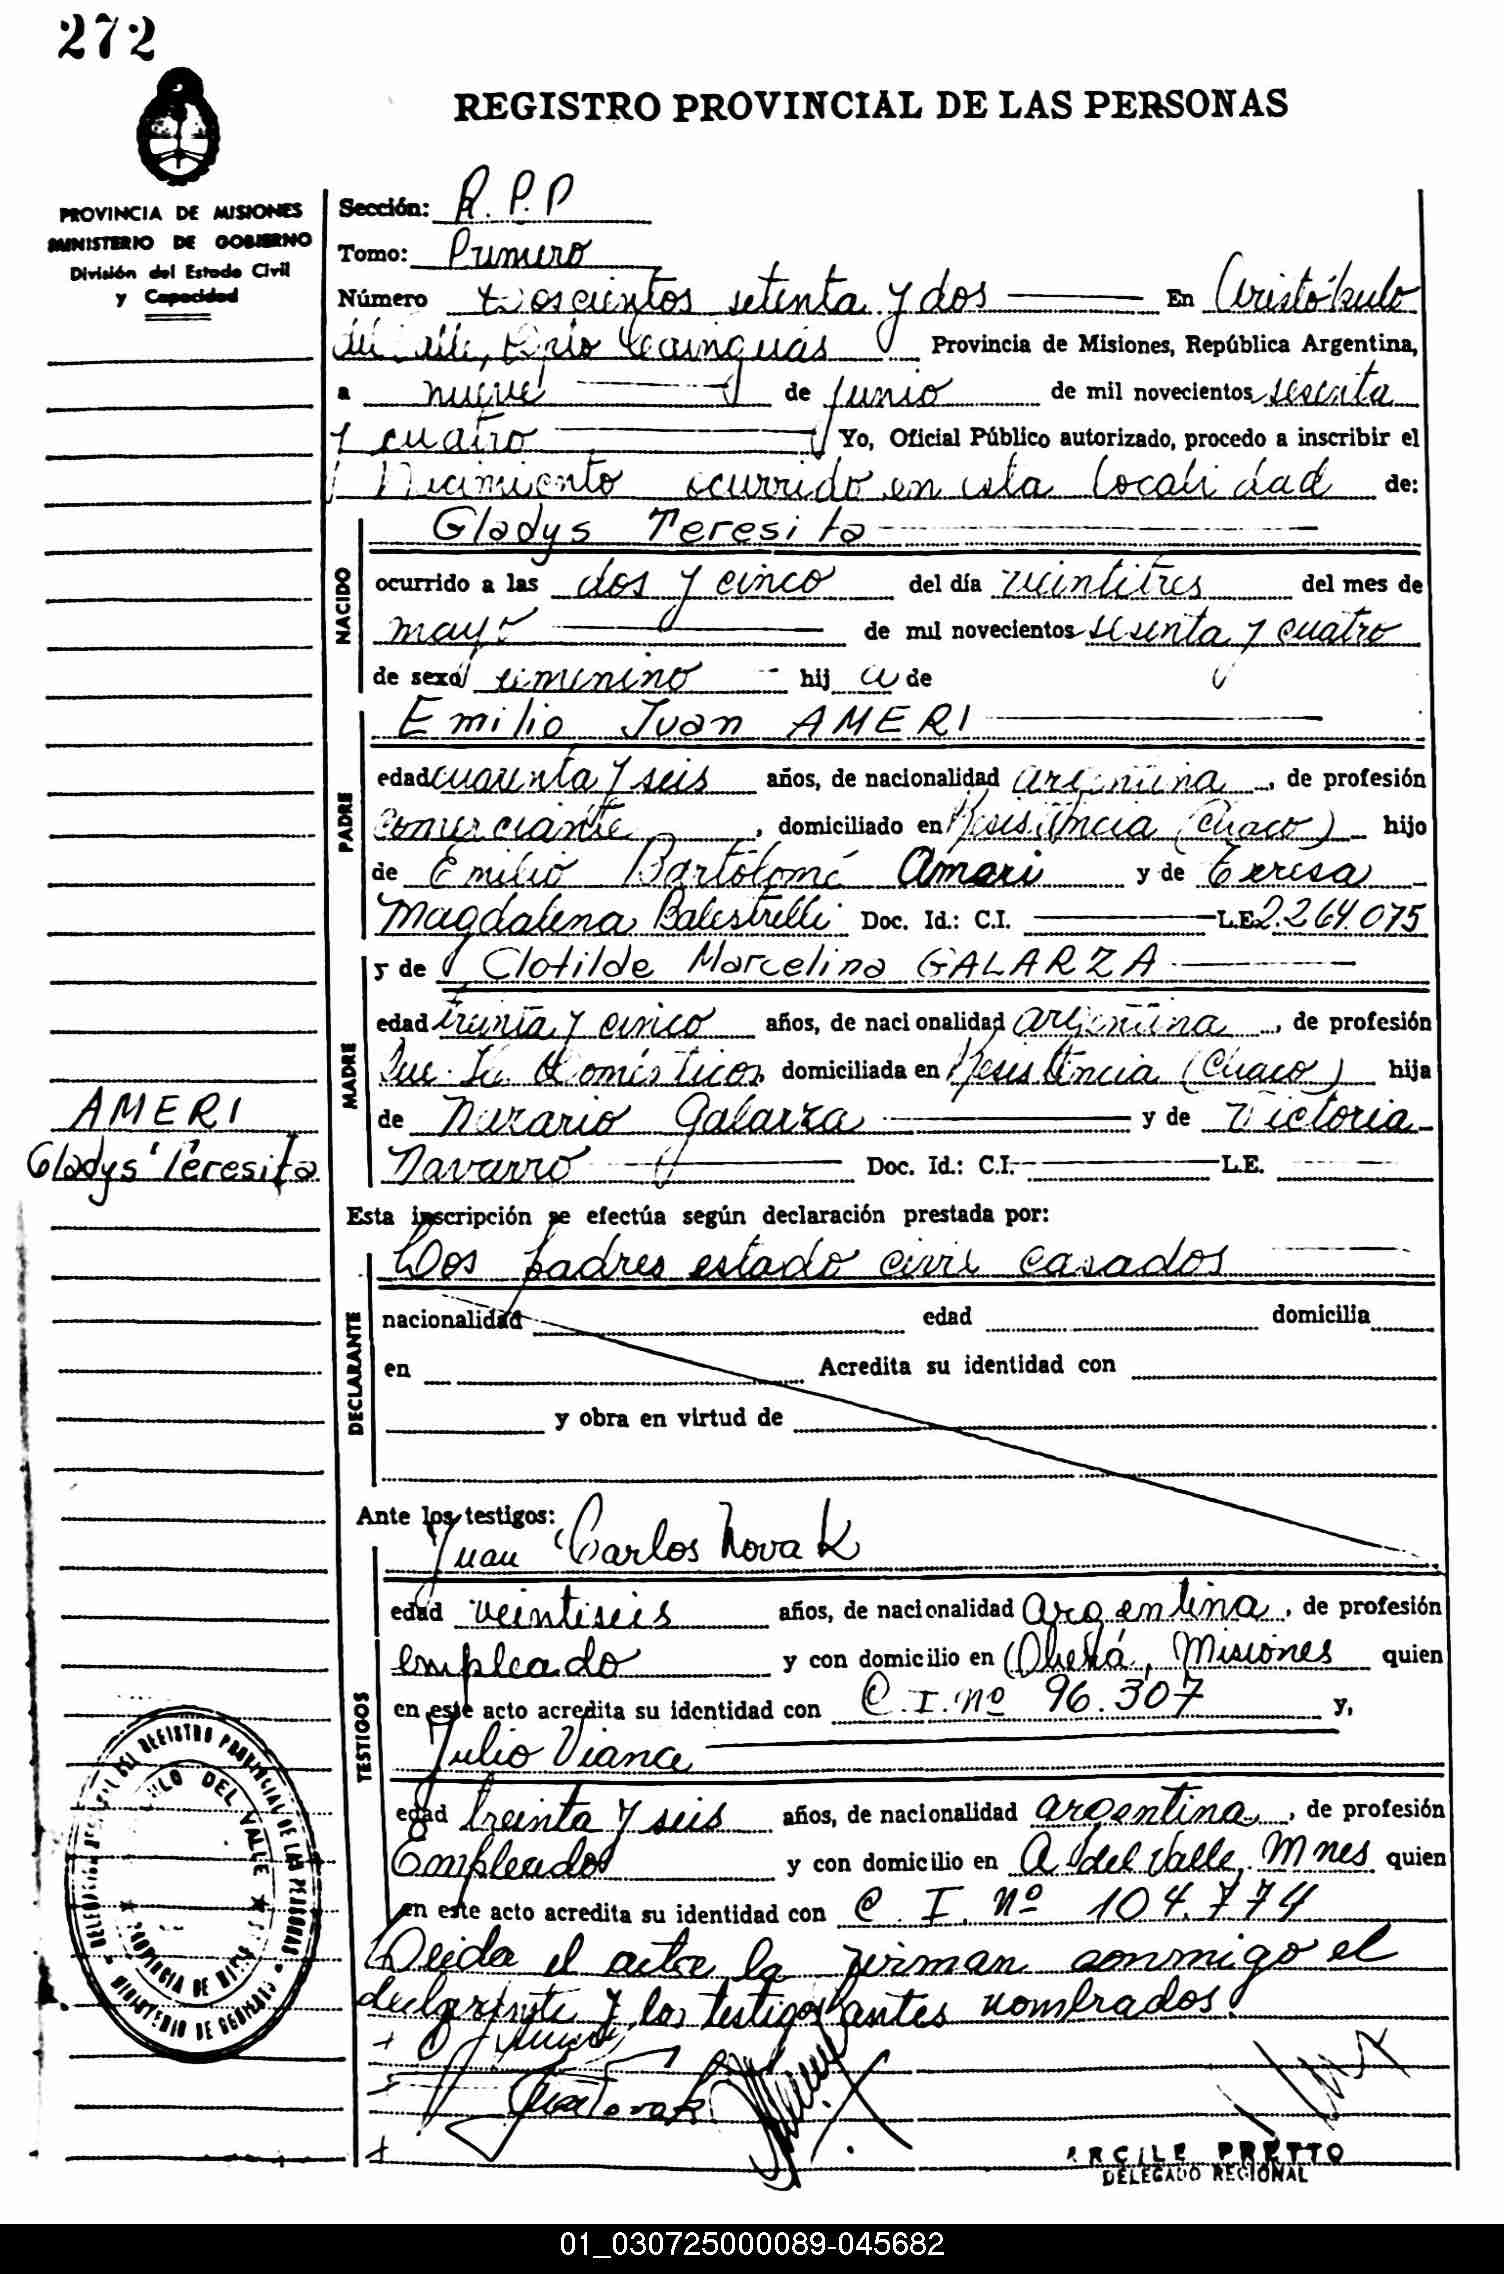 272
REGISTRO PROVINCIAL DE LAS PERSONAS
PROVINCIA DE MISIONES
MINISTERIO DE GOBIERNO
División del Estado Civil
y Capacidad
Sección: R.P.P
Tomo: Primero
Número doscientos setenta y dos En Aristóbulo
del Valle, Dpto Cainguás Provincia de Misiones, República Argentina,
a nueve de junio de mil novecientos sesenta
y cuatro Yo, Oficial Público autorizado, procedo a inscribir el
Nacimiento ocurrido en esta localidad de:
NACIDO
Gladys Teresita
ocurrido a las dos y cinco del día veintitres del mes de
mayo de mil novecientos sesenta y cuatro
de sexo femenino hij a de
PADRE
Emilio Juan AMERI
edad cuarenta y seis años, de nacionalidad argentina, de profesión
comerciante, domiciliado en Resistencia (Chaco) hijo
de Emilio Bartolomé Ameri y de Teresa
Magdalena Balestrelli Doc. Id.: C.I. L.E. 2.264.075
MADRE
y de Clotilde Marcelina GALARZA
edad treinta y cinco años, de nacionalidad argentina, de profesión
Que. Ha. Domésticos, domiciliada en Resistencia (Chaco) hija
de Nazario Galarza y de Victoria
Navarro Doc. Id.: C.I. L.E.
AMERI
Gladys Teresita
Esta inscripción se efectúa según declaración prestada por:
DECLARANTE
Los padres estado civil casados
nacionalidad edad domicilia
en Acredita su identidad con
y obra en virtud de
Ante los testigos:
TESTIGOS
Juan Carlos Novak
edad veintiseis años, de nacionalidad argentina, de profesión
empleado y con domicilio en Oberá, Misiones quien
en este acto acredita su identidad con C.I. nº 96.307 y,
Julio Viana
edad treinta y seis años, de nacionalidad argentina, de profesión
Empleado y con domicilio en A. del Valle, Mnes quien
en este acto acredita su identidad con C. I. Nº 104.774
Leida el acta la firman conmigo el
declarante y los testigos antes nombrados.
DEL REGISTRO PROVINCIAL DE LAS PERSONAS
DEL VALLE
PROVINCIA DE MISIONES
MINISTERIO DE GOBIERNO
PRETTO
DELEGADO REGIONAL
01_030725000089-045682